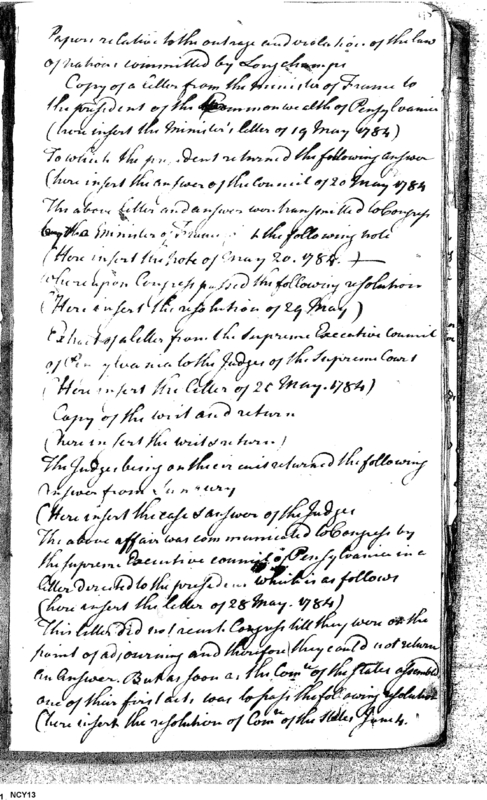 Papers relative to the outrage and violation of the law
of nations committed by Longchamps
Copy of a letter from the minister of France to
the president of the Commonwealth of Pensylvania
(here insert the Minister's letter of 19 May 1784)
To which the president returned the following answer
(here insert the answer of the Council of 20 May 1784
The above letter and answer were transmitted to Congress
by the Minister of France the following note
(Here insert the Note of May 20. 1784.)
whereupon Congress passed the following resolution
(Here insert the resolution of 29 May)
Extract of a letter from the Supreme Executive Council
of Pensylvania to the Judges of the Supreme Court
(Here insert the letter of 25 May. 1784)
Copy of the writ and return
(here insert the writ & return)
The Judges being on their circuit returned the following
answer from
(Here insert the case & answer of the Judges
The above affair was communicated to Congress by
the supreme Executive council of Pensylvania in a
letter directed to the president which is as follows
(here insert the letter of 28 May. 1784)
This letter did not reach Congress till they were on the
point of adjourning and therefore they could not return
an Answer. But as soon as the Comee of the states assembled
one of their first acts was to pass the following resolution
(here insert the resolution of Comee of the states June 4.
NCY13